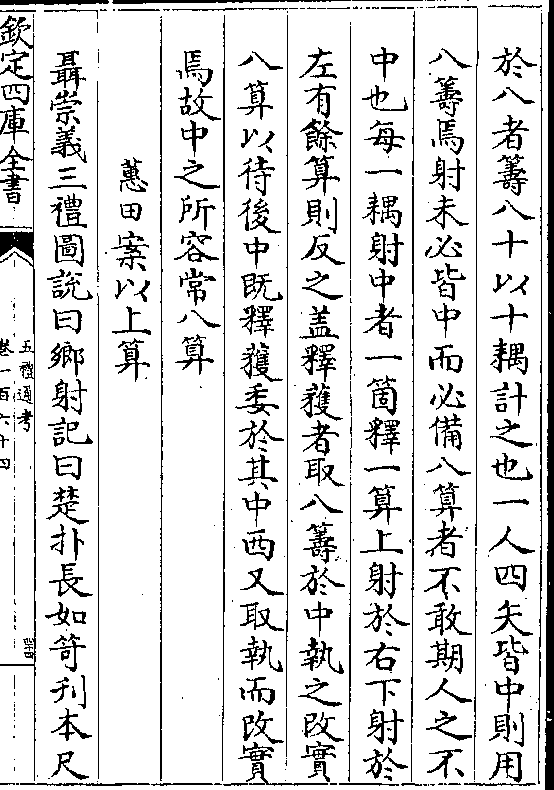 於八者籌八十以十耦計之也一人四矢皆中則用
八籌焉射未必皆中而必備八算者不敢期人之不
中也每一耦射中者一箇釋一算上射於右下射於
左有餘算則反之盖釋獲者取八籌於中執之改實
八算以待後中既釋獲委於其中西又取執而改實
焉故中之所容常八算
蕙田案以上算
聶崇義三禮圖說曰鄉射記曰楚扑長如笴刋本尺
欽定四庫全書
五禮通考
卷一百六十四